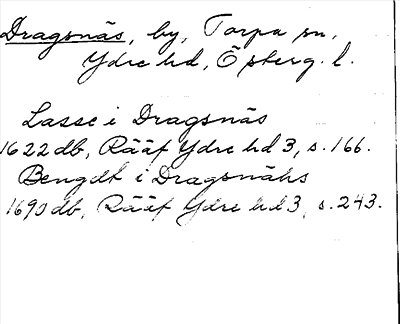 Dragsnäs, by, Torpa sn,
Ydre hd, Österg. l.
Lasse i Dragsnäs
1622 db, Rääf Ydre hd 3, s. 166.
Bengdt i Dragsnähs
1690 db, Rääf Ydre hd 3, s. 243.